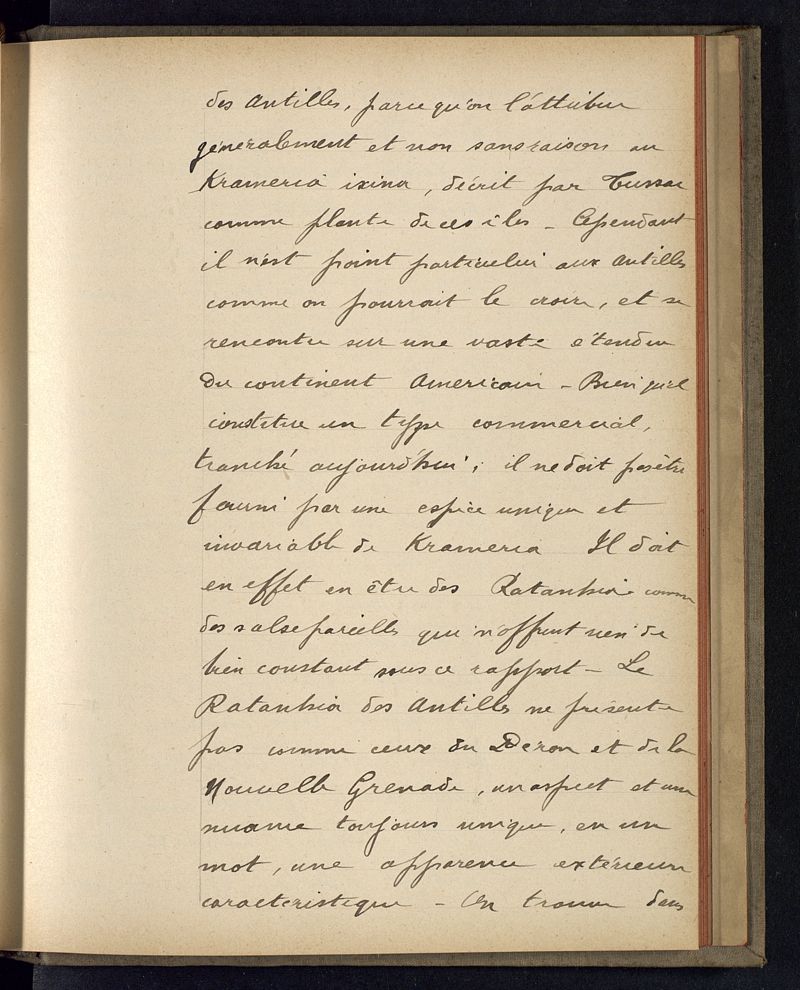 des Antilles, parce qu'on l'attribue
généralement et non sans raison au
Krameria ixina, décrit par Tussac
comme plante de ces îles - Cependant
il n'est point particulier aux Antilles
comme on pourrait le croire, et se
rencontre sur une vaste étendue
du continent Américain - Bien qu'il
constitue un type commercial,
tranché aujourd'hui; il ne doit pas être
fourni par une espèce unique et
invariable de Krameria Il doit
en effet en être des Ratanhia comme
des salsepareilles qui n'offrent rien de
bien constant sous ce rapport - Le
Ratanhia des Antilles ne présente
pas comme ceux du Pérou et de la
Nouvelle Grenade, un aspect et une
nuance toujours unique, en un
mot, une apparence extérieure
caractéristique - On trouve dans